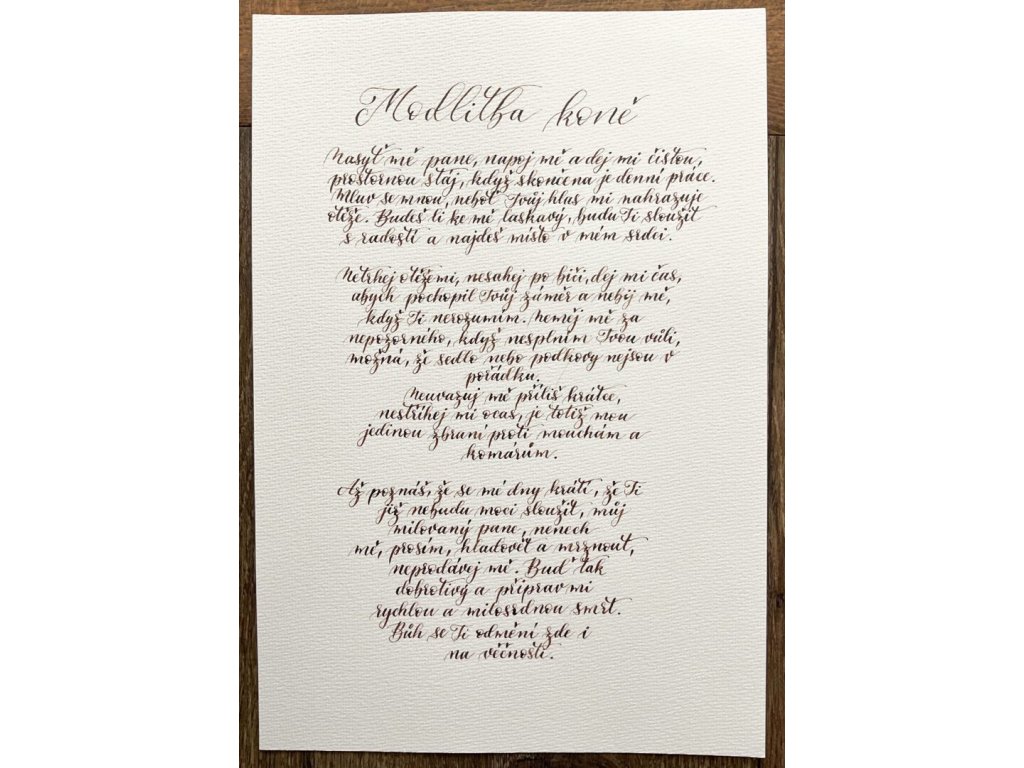 Modlitba koně
Nasyť mě pane, napoj mě a dej mi čistou,
prostornou stáj, když skončena je denní práce.
Mluv se mnou, neboť Tvůj hlas mi nahrazuje
otěže. Budeš li ke mě laskavý, budu Ti sloužit
s radostí a najdeš místo v mém srdci.
Netrhej otěžemi, nesahej po biči, dej mi čas,
abych pochopil Tvůj záměr a nebij mě,
když Ti nerozumím. Neměj mě za
nepozorného, když nesplním Tvou vůli,
možná, že sedlo nebo podkovy nejsou v
pořádku.
Neuvazuj mě příliš krátce,
nestříhej mi ocas, je totiž mou
jedinou zbraní proti mouchám a
komárům.
Až poznáš, že se mé dny krátí, že Ti
již nebudu moci sloužit, můj
milovaný pane, nenech
mě, prosím, hladovět a mrznout,
neprodávej mě. Buď tak
dobrotivý a připrav mi
rychlou a milosrdnou smrt.
Bůh se Ti odmění zde i
na věčnosti.